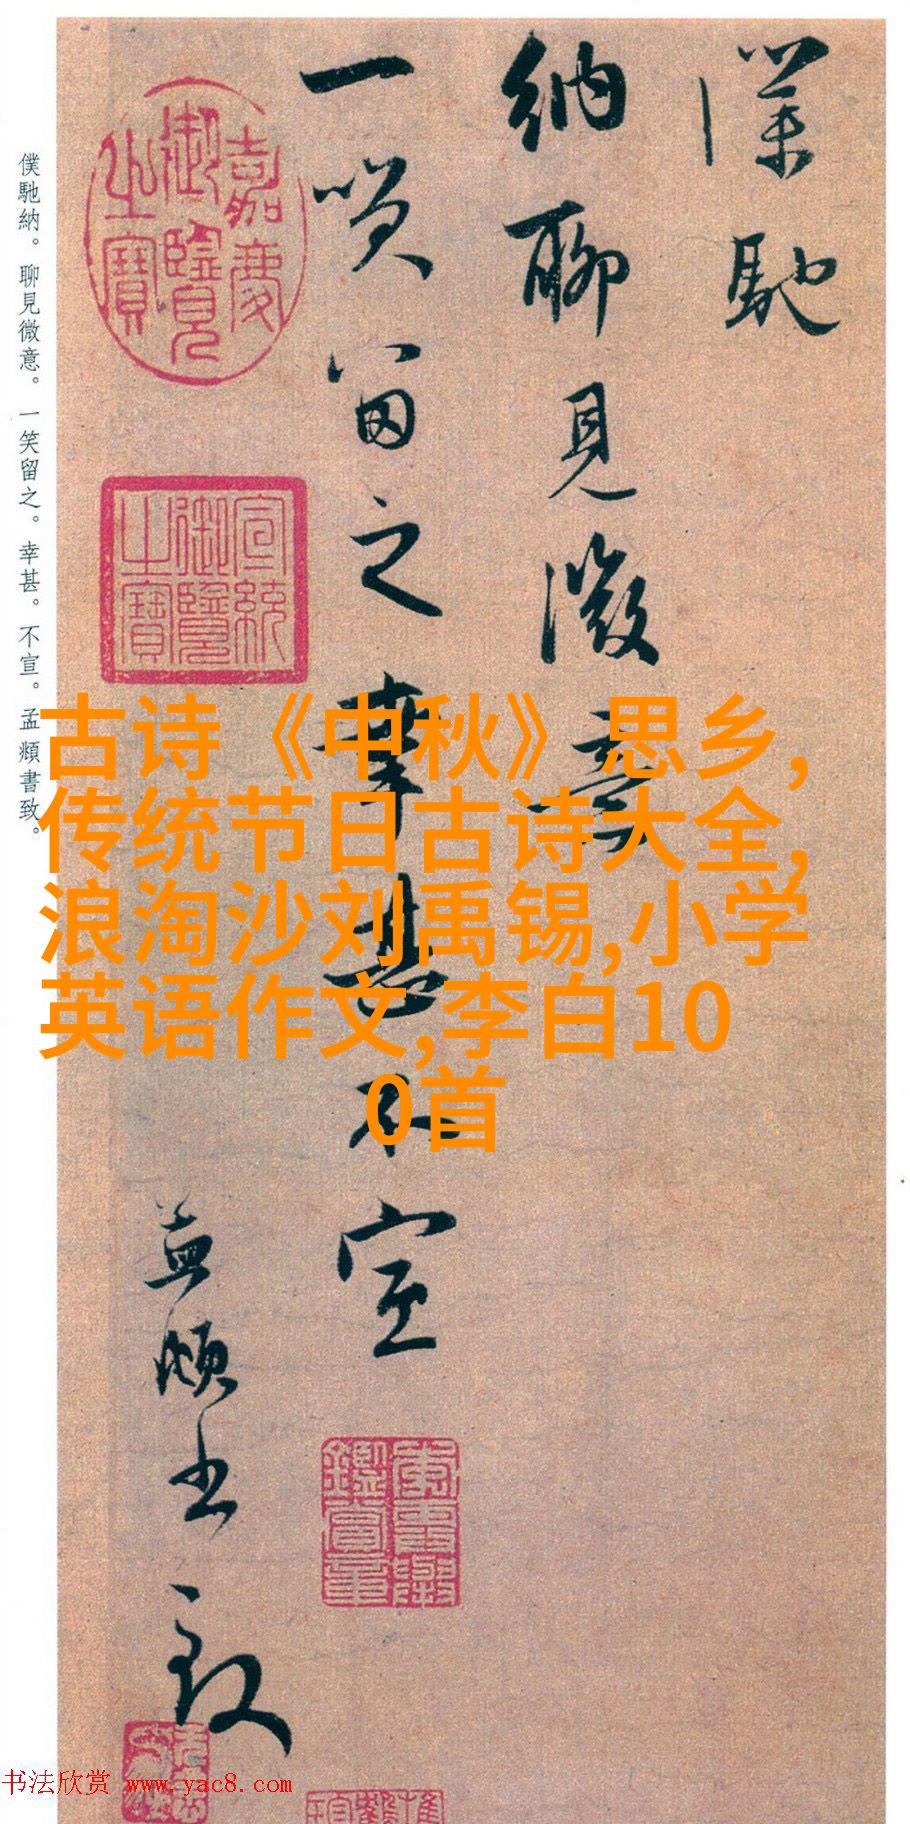 僕馳
納聊見微意
一笑留之幸甚不宣
孟頫書致
嘉慶御覽之寶
宣統御覽之寶
僕馳納。聊見微意。一笑留之。幸甚。不宣。孟頫書致。
古诗《中秋》思乡,
传统节日古诗大全,
浪淘沙刘禹锡,小学
英语作文,李白10
0首
书法欣赏 www.yac8.com